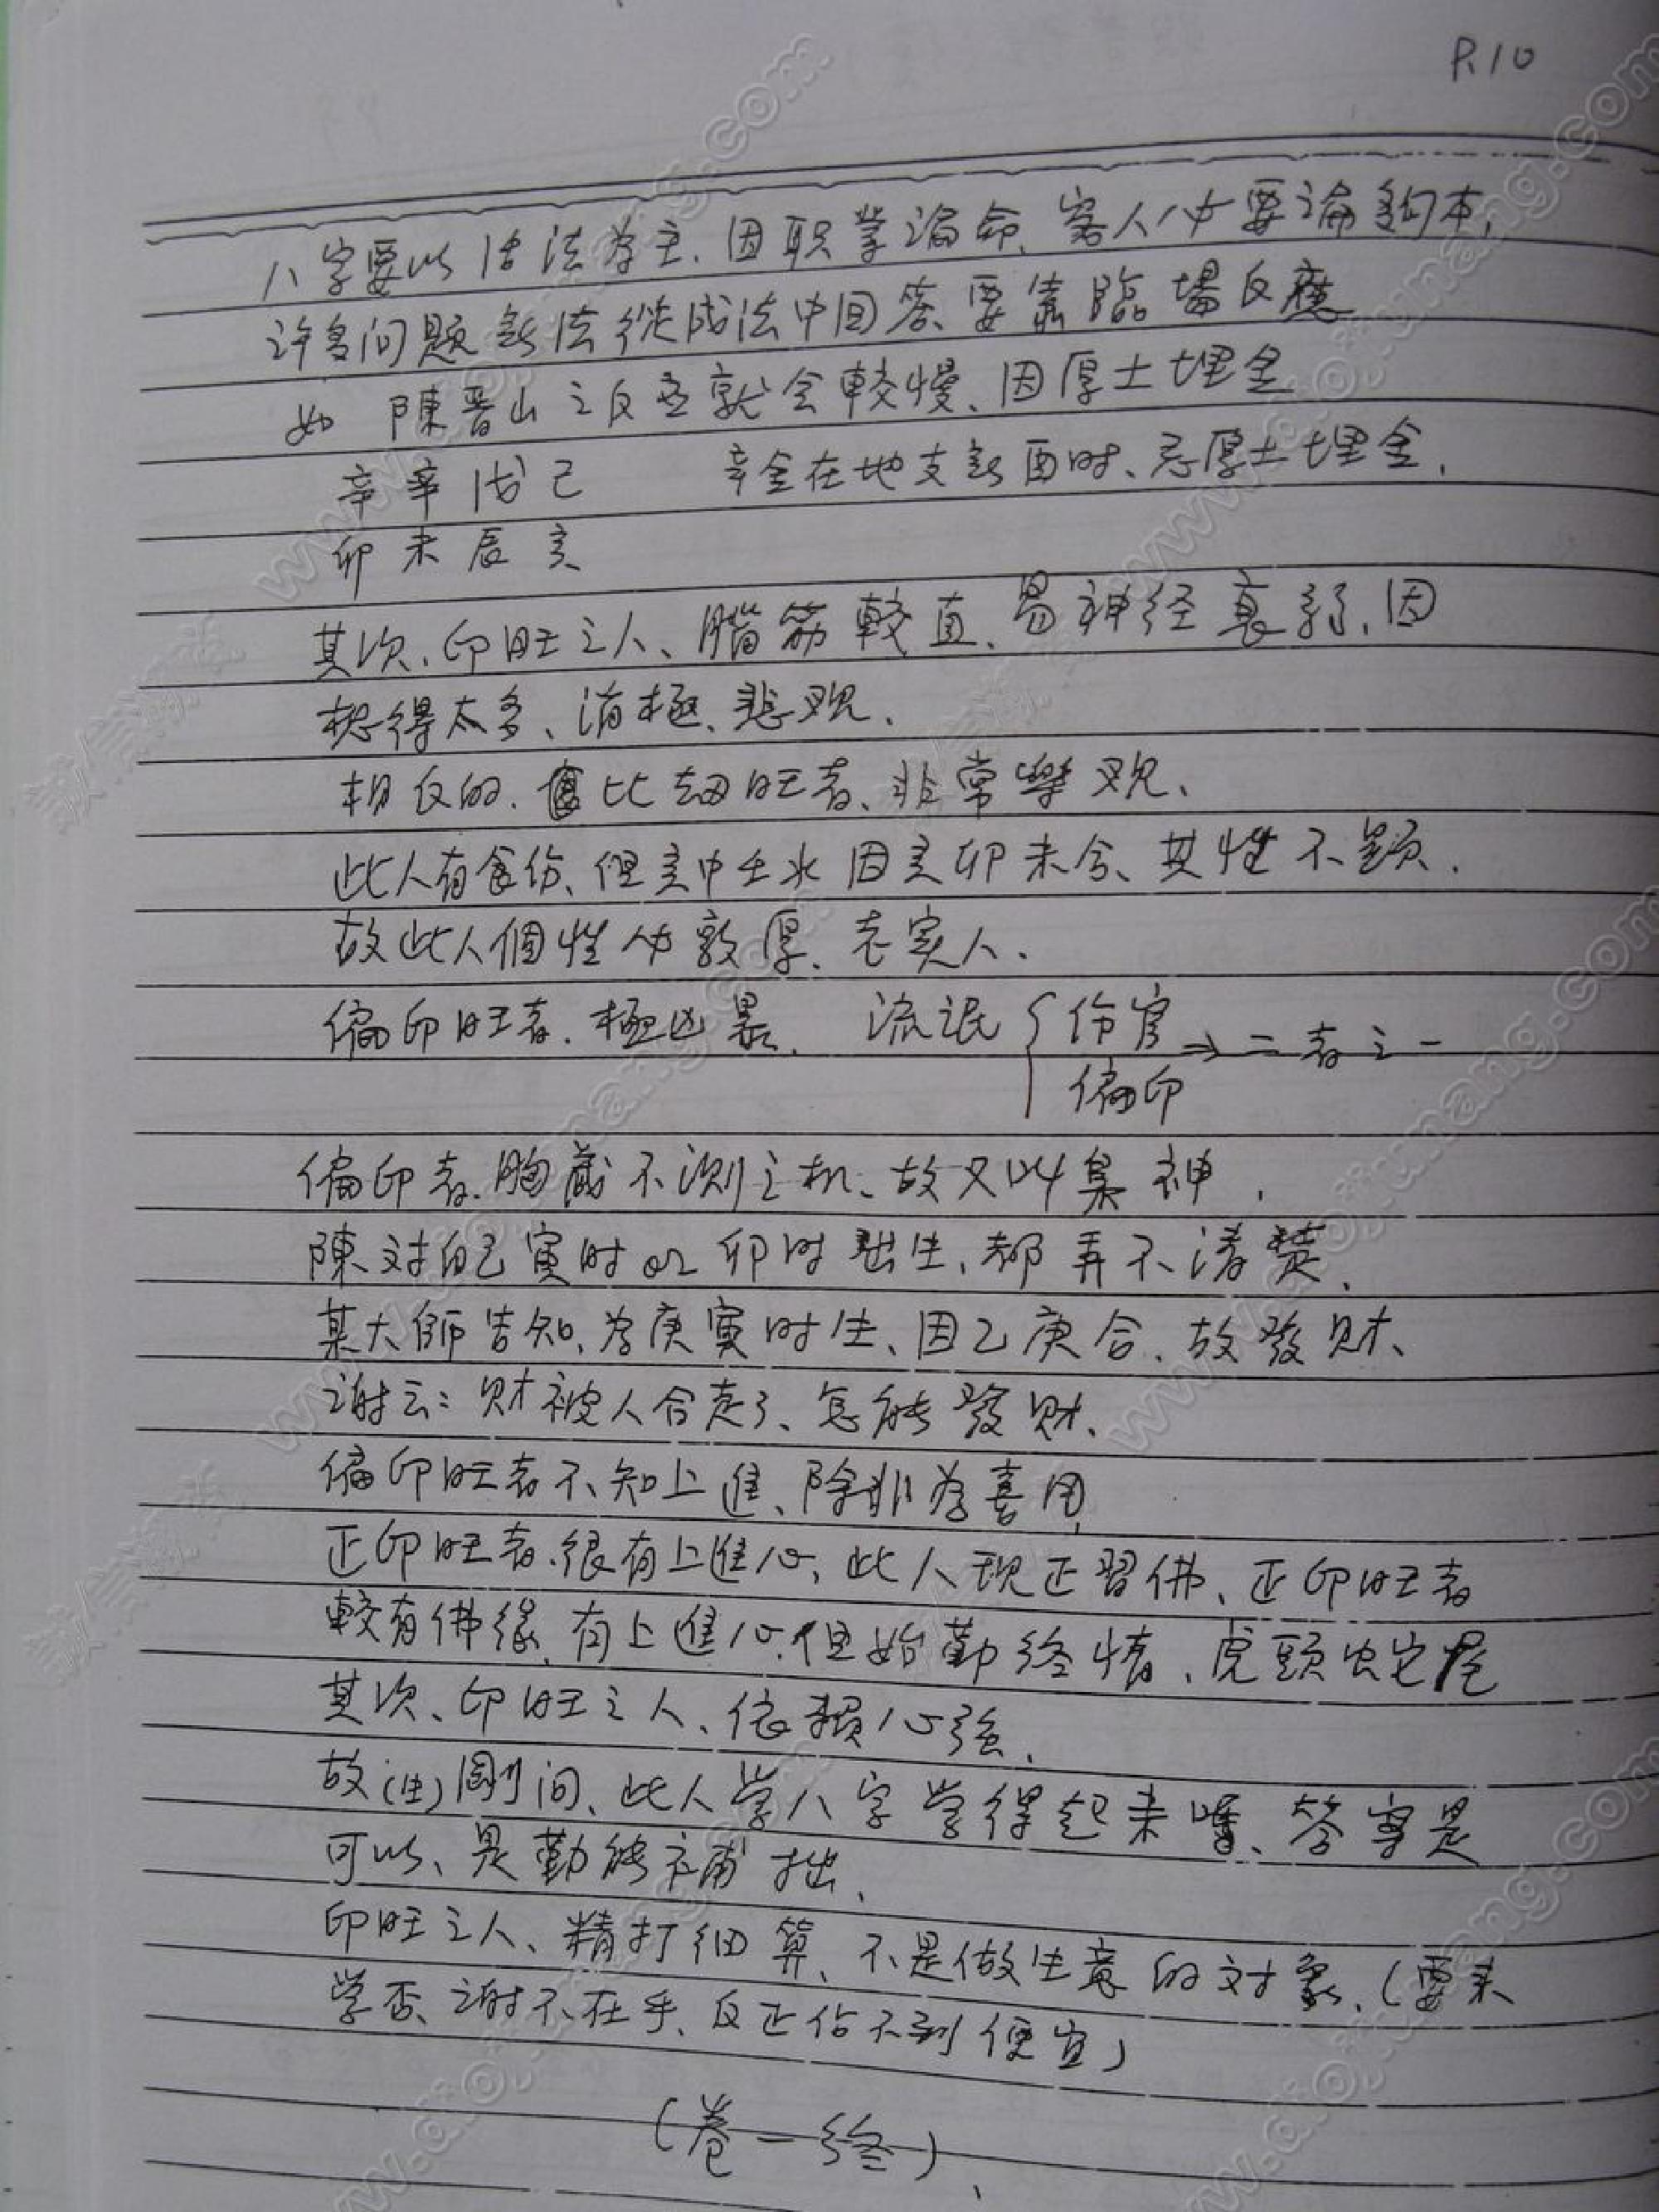 P.10
八字要以活法為主、因职業論命、客人必要論夠本、
許多问題無法從成法中回答、要靠臨場反應
如 陳晋山之反應就会較慢、因厚土埋金
辛辛戊己 辛金在地支無酉时、忌厚土埋金、
卯未辰亥
其次、印旺之人、腦筋較直、易神经衰弱、因
想得太多、消極、悲观、
相反的、比劫旺者、非常樂观、
此人有食伤、但亥中壬水因亥卯未合、其性不顕、
故此人個性必敦厚、老实人、
偏印旺者、極凶暴、 流氓{伤官 → 二者之一
偏印
偏印者、胸藏不测之机、故又叫梟神、
陳对自己寅时or卯时出生、都弄不清楚、
某大師告知、為庚寅时生、因乙庚合、故發财、
謝云：财被人合走了、怎能發财、
偏印旺者不知上進、除非為喜用、
正印旺者、很有上進心、此人现正習佛、正印旺者
較有佛緣、有上進心、但始勤终惰、虎頭虫它尾
其次、印旺之人、依賴心强、
故(生)剛问、此人学八字学得起来嗎、答案是
可以、是勤能補拙、
印旺之人、精打细算、不是做生意的对象、(要来
学否、謝不在乎、反正佔不到便宜)
(卷一终)、
www.aiojiunang.com